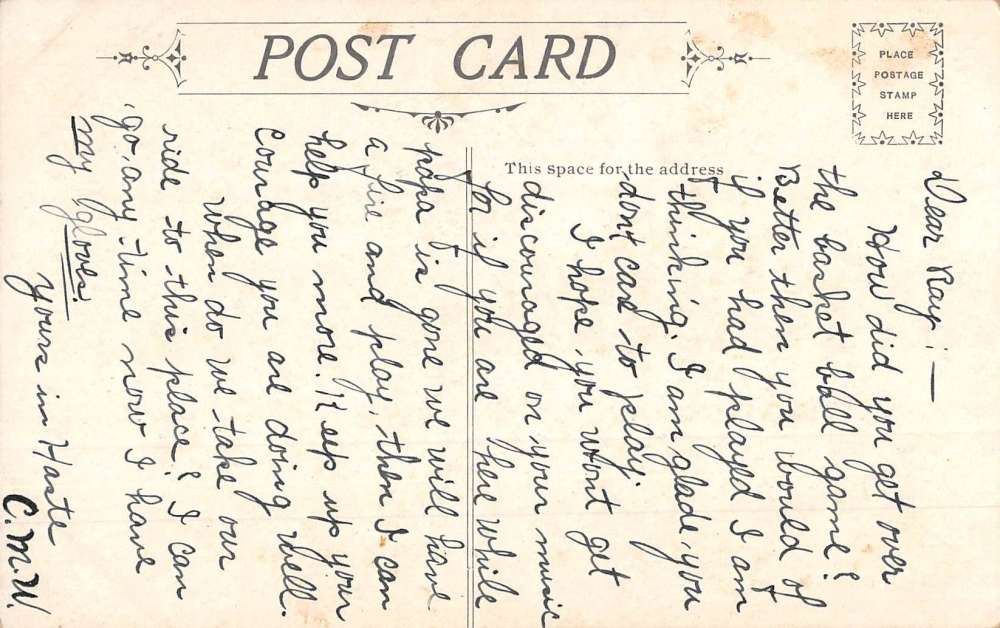 POST CARD
PLACE
POSTAGE
STAMP
HERE
This space for the address
Dear Ray: —
How did you get over
the basket ball game?
Better then you would of
if you had played I am
thinking. I am glade you
dont care to play.
I hope you wont get
discouraged on your music
for if you are here while
papa is gone we will have
a fire and play, then I can
help you more. Keep up your
courage you are doing well.
When do we take our
ride to this place? I can
go any time now I have
my gloves.
Yours in Haste
C.M.W.